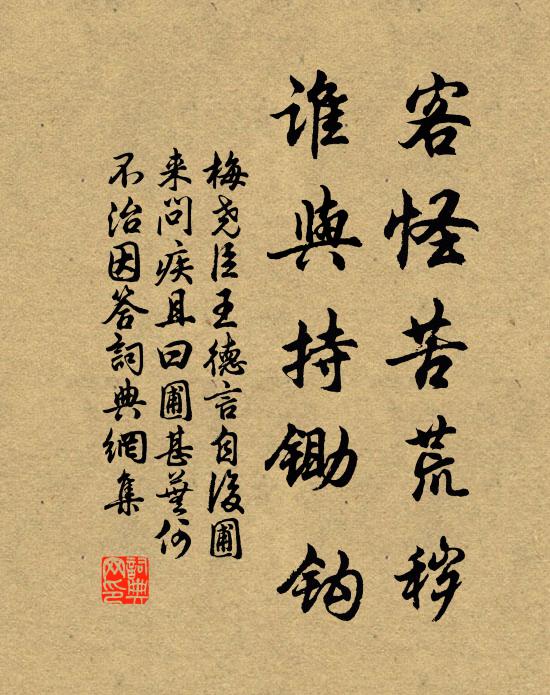 客怪苦荒秽
谁與持锄钩
梅尧臣王德言自後圃
来问疾且曰圃甚蕪何
不治因答詞典網集
詞典網印